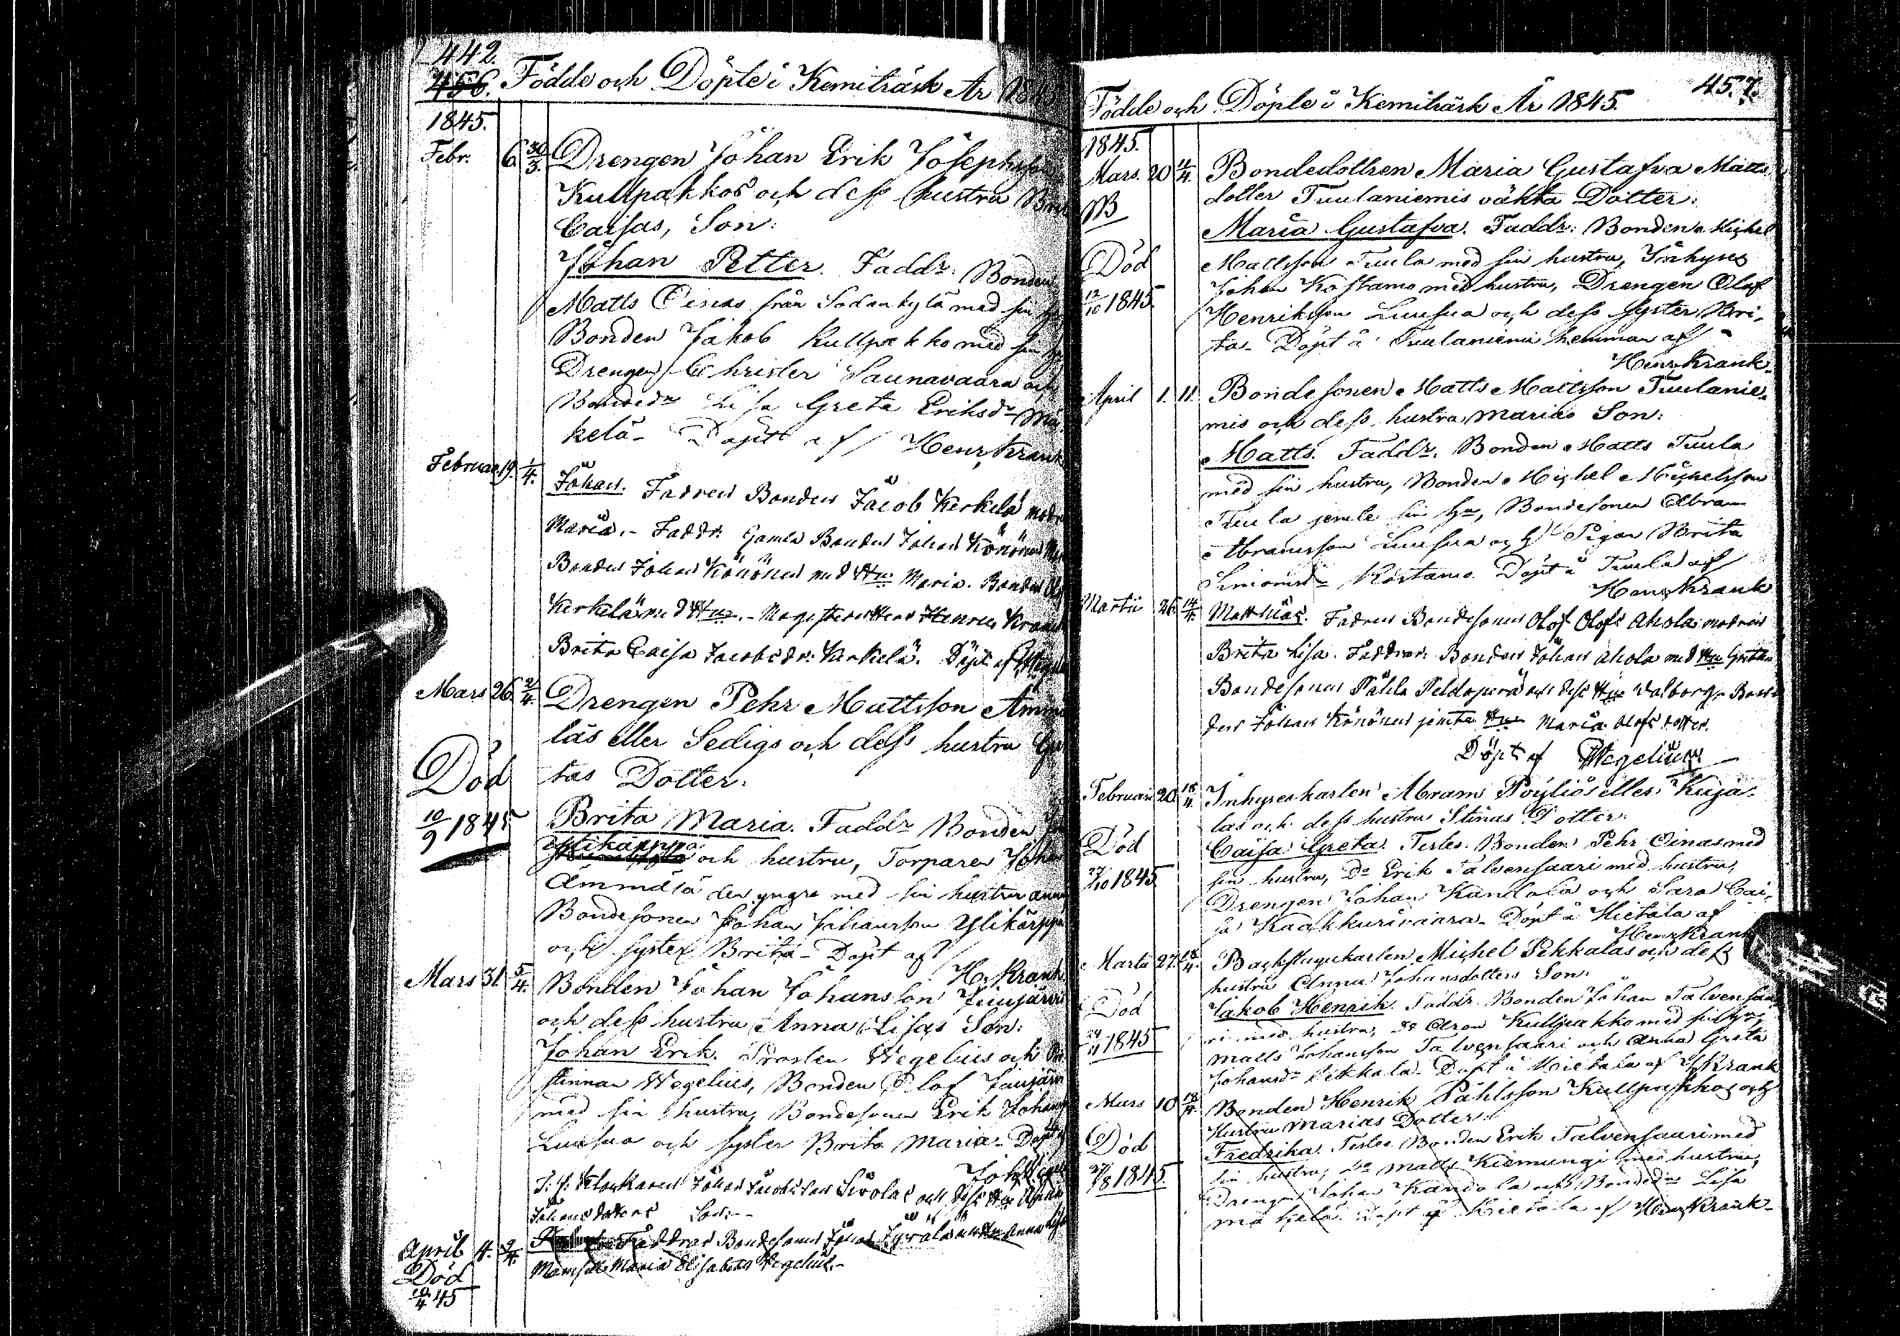 442.
456. Födde och Döpte i Kemiträsk År 1845
1845.
Febr. 6. 30/3. Drengen Johan Erik Josephsson
Kullpakkos och dess hustru Brita
Caisas, Son:
Johan Petter. Faddr: Bonden
Matts Oinas från Sodankylä med sin
Bonden Jakob Kullpakko med sin
Drengen Christer Saunavaara och
Bondedr Lisa Greta Eriksdr Mä
kelä. Döpt af Henr. Krank
Februari 19. 1/4. Johan. Fadren Bonden Jacob Kerkelä modr
Maria. Faddr: Gamla Bonden Johan Könönen
Bonden Johan Könönen med Hu: Maria. Bonden
Kerkelä med Hu: Magister Herr Henric Krank
Brita Caisa Jacobsdr: Kerkelä. Döpt af Wegelius
Mars 26 2/4. Drengen Pehr Mattsson Ämmä
läs eller Sedigs och dess hustru Gre
tas Dotter:
Död
10/9 1845
Brita Maria. Faddr Bonden
Ylikärppä och hustru, Torparen Johan
Ämmälä den yngre med sin hustru Anna
Bondesonen Johan Johansson Ylikärppä
och syster Brita. Döpt af
H. Krank
Mars 31 5/4. Bonden Johan Johansson Juujärvi
och dess hustru Anna Lisas Son:
Johan Erik. Prosten Wegelius och
stinnan Wegelius, Bonden Olof Juujärvi
med sin hustru, Bondesonen Erik Johans
Luusua och syster Brita Maria. Döpt af
Joh. Wegelius
Klockaren Johan Jacobsson Sivolas och dess Hu Anna
Johansdotters Son:
April 4. 9/4. Faddrar Bondesonen Johan Jyrälä med Hu Anna Lisa
Mamsell Maria Elisabeth Wegelius.
Död
10/4 45
457.
Födde och Döpte i Kemiträsk År 1845.
1845.
Mars. 20 4/4. Bondedottren Maria Gustafva Matts
dotter Tuulaniemis oäkta Dotter:
Maria Gustafva. Faddr: Bonden Michel
Död
Mattsson Tuula med sin hustru, Inhyses
Johan Kostamo med hustru, Drengen Olof
12/10 1845.
Henriksson Luusua och dess syster Bri-
ta. Döpt å Tuulaniemi hemman af
Henr. Krank.
April 1. 11. Bondesonen Matts Mattsson Tuulanie-
mis och dess hustru Marias Son:
Matts. Faddr. Bonden Matts Tuula
med sin hustru, Bonden Michel Michelsson
Tuula jemte sin hu, Bondesonen Abram
Abramsson Luusua och Pigan Brita
Simonsdr Kostamo. Döpt å Tuula af
Henr. Krank
Martii 26. 14/4. Matthias. Fadren Bondesonen Olof Olofs Ahola modren
Brita Lisa. Faddrar: Bonden Johan Ahola med Hu Greta
Bondesonen Påhla Peldoperä och dess Hu Valborg. Bon
den Johan Könönen jemte Hu Maria Olofs dotter.
Döpt af Wegelius
Februarii 20 18/4. Inhyseskarlen Abram Pöyliös eller Kuja-
las och dess hustru Stinas Dotter:
Död
Caisa Greta. Testes. Bonden Pehr Oinas med
27/10 1845
sin hustru, Do Erik Talvensaari med hustru,
Drengen Johan Kandola och Sara Cai-
sa Kaakkurivaara. Döpt å Hietala af
Henr. Krank
Martii 27. 18/4. Backstugukarlen Michel Pekkalas och dess
hustru Anna Johansdotters Son:
Död
Jakob Henrik. Faddr. Bonden Johan Talvensaa
ri med hustru, Do Aron Kullpakko med sin hu
1845
Matts Johansson Talvensaari och Anna Greta
Johansdr Pekkala. Döpt å Hietala af H Krank
Mars 10 18/4. Bonden Henrik Påhlsson Kullpakkos och
Hustru Marias Dotter:
Död
Fredrika. Testes. Bonden Erik Talvensaari med
sin hustru, Do Matts Kiemungi med hustru,
27/8 1845
Drengen Johan Kandola och Bondedr Lisa
Mäkelä. Döpt å Hietala af Henr. Krank